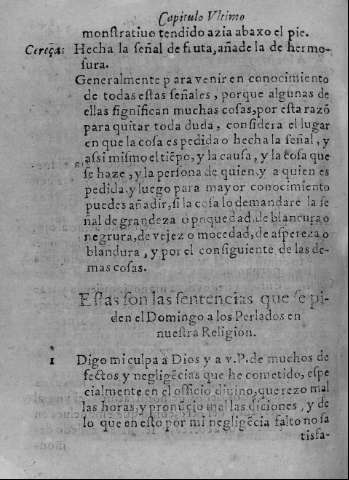 Capitulo Vltimo
monstratiuo tendido azia abaxo el pie.
Cereça: Hecha la señal de fruta, añade la de hermo-
sura.
Generalmente para venir en conocimiento
de todas estas señales, porque algunas de
ellas significan muchas cosas, por esta razõ
para quitar toda duda, considera el lugar
en que la cosa es pedida o hecha la señal, y
assi mismo el tiẽpo, y la causa, y la cosa que
se haze, y la persona de quien, y a quien es
pedida, y luego para mayor conocimiento
puedes añadir, si la cosa lo demandare la se
ñal de grandeza o poquedad, de blancura o
negrura, de vejez o mocedad, de aspereza o
blandura, y por el consiguiente de las de-
mas cosas.
Estas son las sentencias que se pi-
den el Domingo a los Perlados en
nuestra Religion.
1 Digo mi culpa a Dios y a v. P. de muchos de
fectos y negligẽcias que he cometido, espe
cialmente en el officio diuino, que rezo mal
las horas, y pronũcio mal las diciones, y de
lo que en esto por mi negligẽcia falto no sa
tisfa-